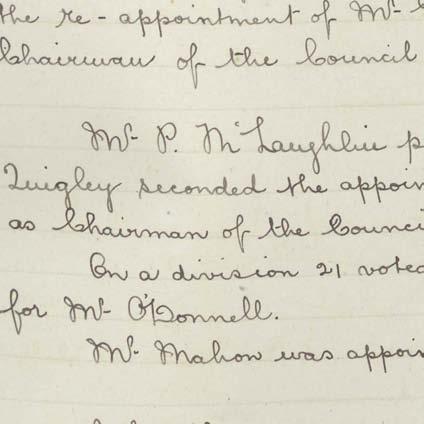 the re-appointment of Mr
Chairman of the Council
Mr P. McLaughlin p
Quigley seconded the appoin
as Chairman of the Counci
On a division 21 voted
for Mr O'Donnell.
Mr Mahon was appoin